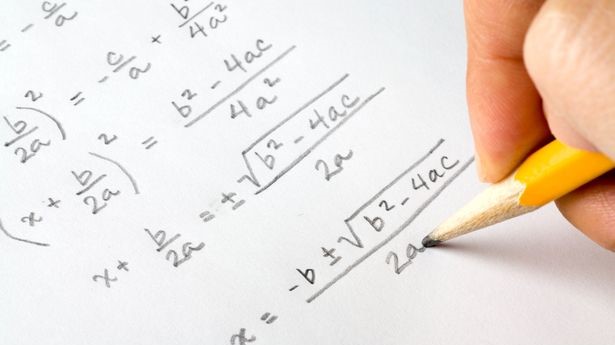 = - c/a
b/2a)² = - c/a + b²/4a²
(x + b/2a)² = b² - 4ac / 4a²
x + b/2a = ± √b² - 4ac / 2a
x = -b ± √b² - 4ac / 2a